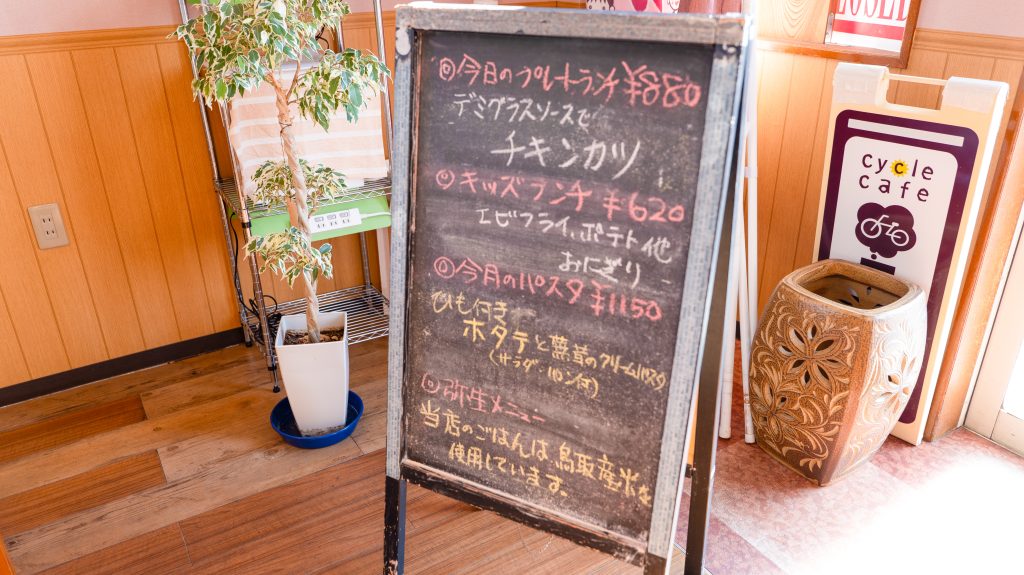 ◎今日のプレートランチ ¥880
デミグラスソースで
チキンカツ
◎キッズランチ ¥620
エビフライ、ポテト他
おにぎり
◎今月のパスタ ¥1150
ひも付き
ホタテと
のクリームパスタ
(サラダ・パン付)
◎弥生メニュー
当店のごはんは鳥取産米を
使用しています。
cycle
cafe
CLOSED